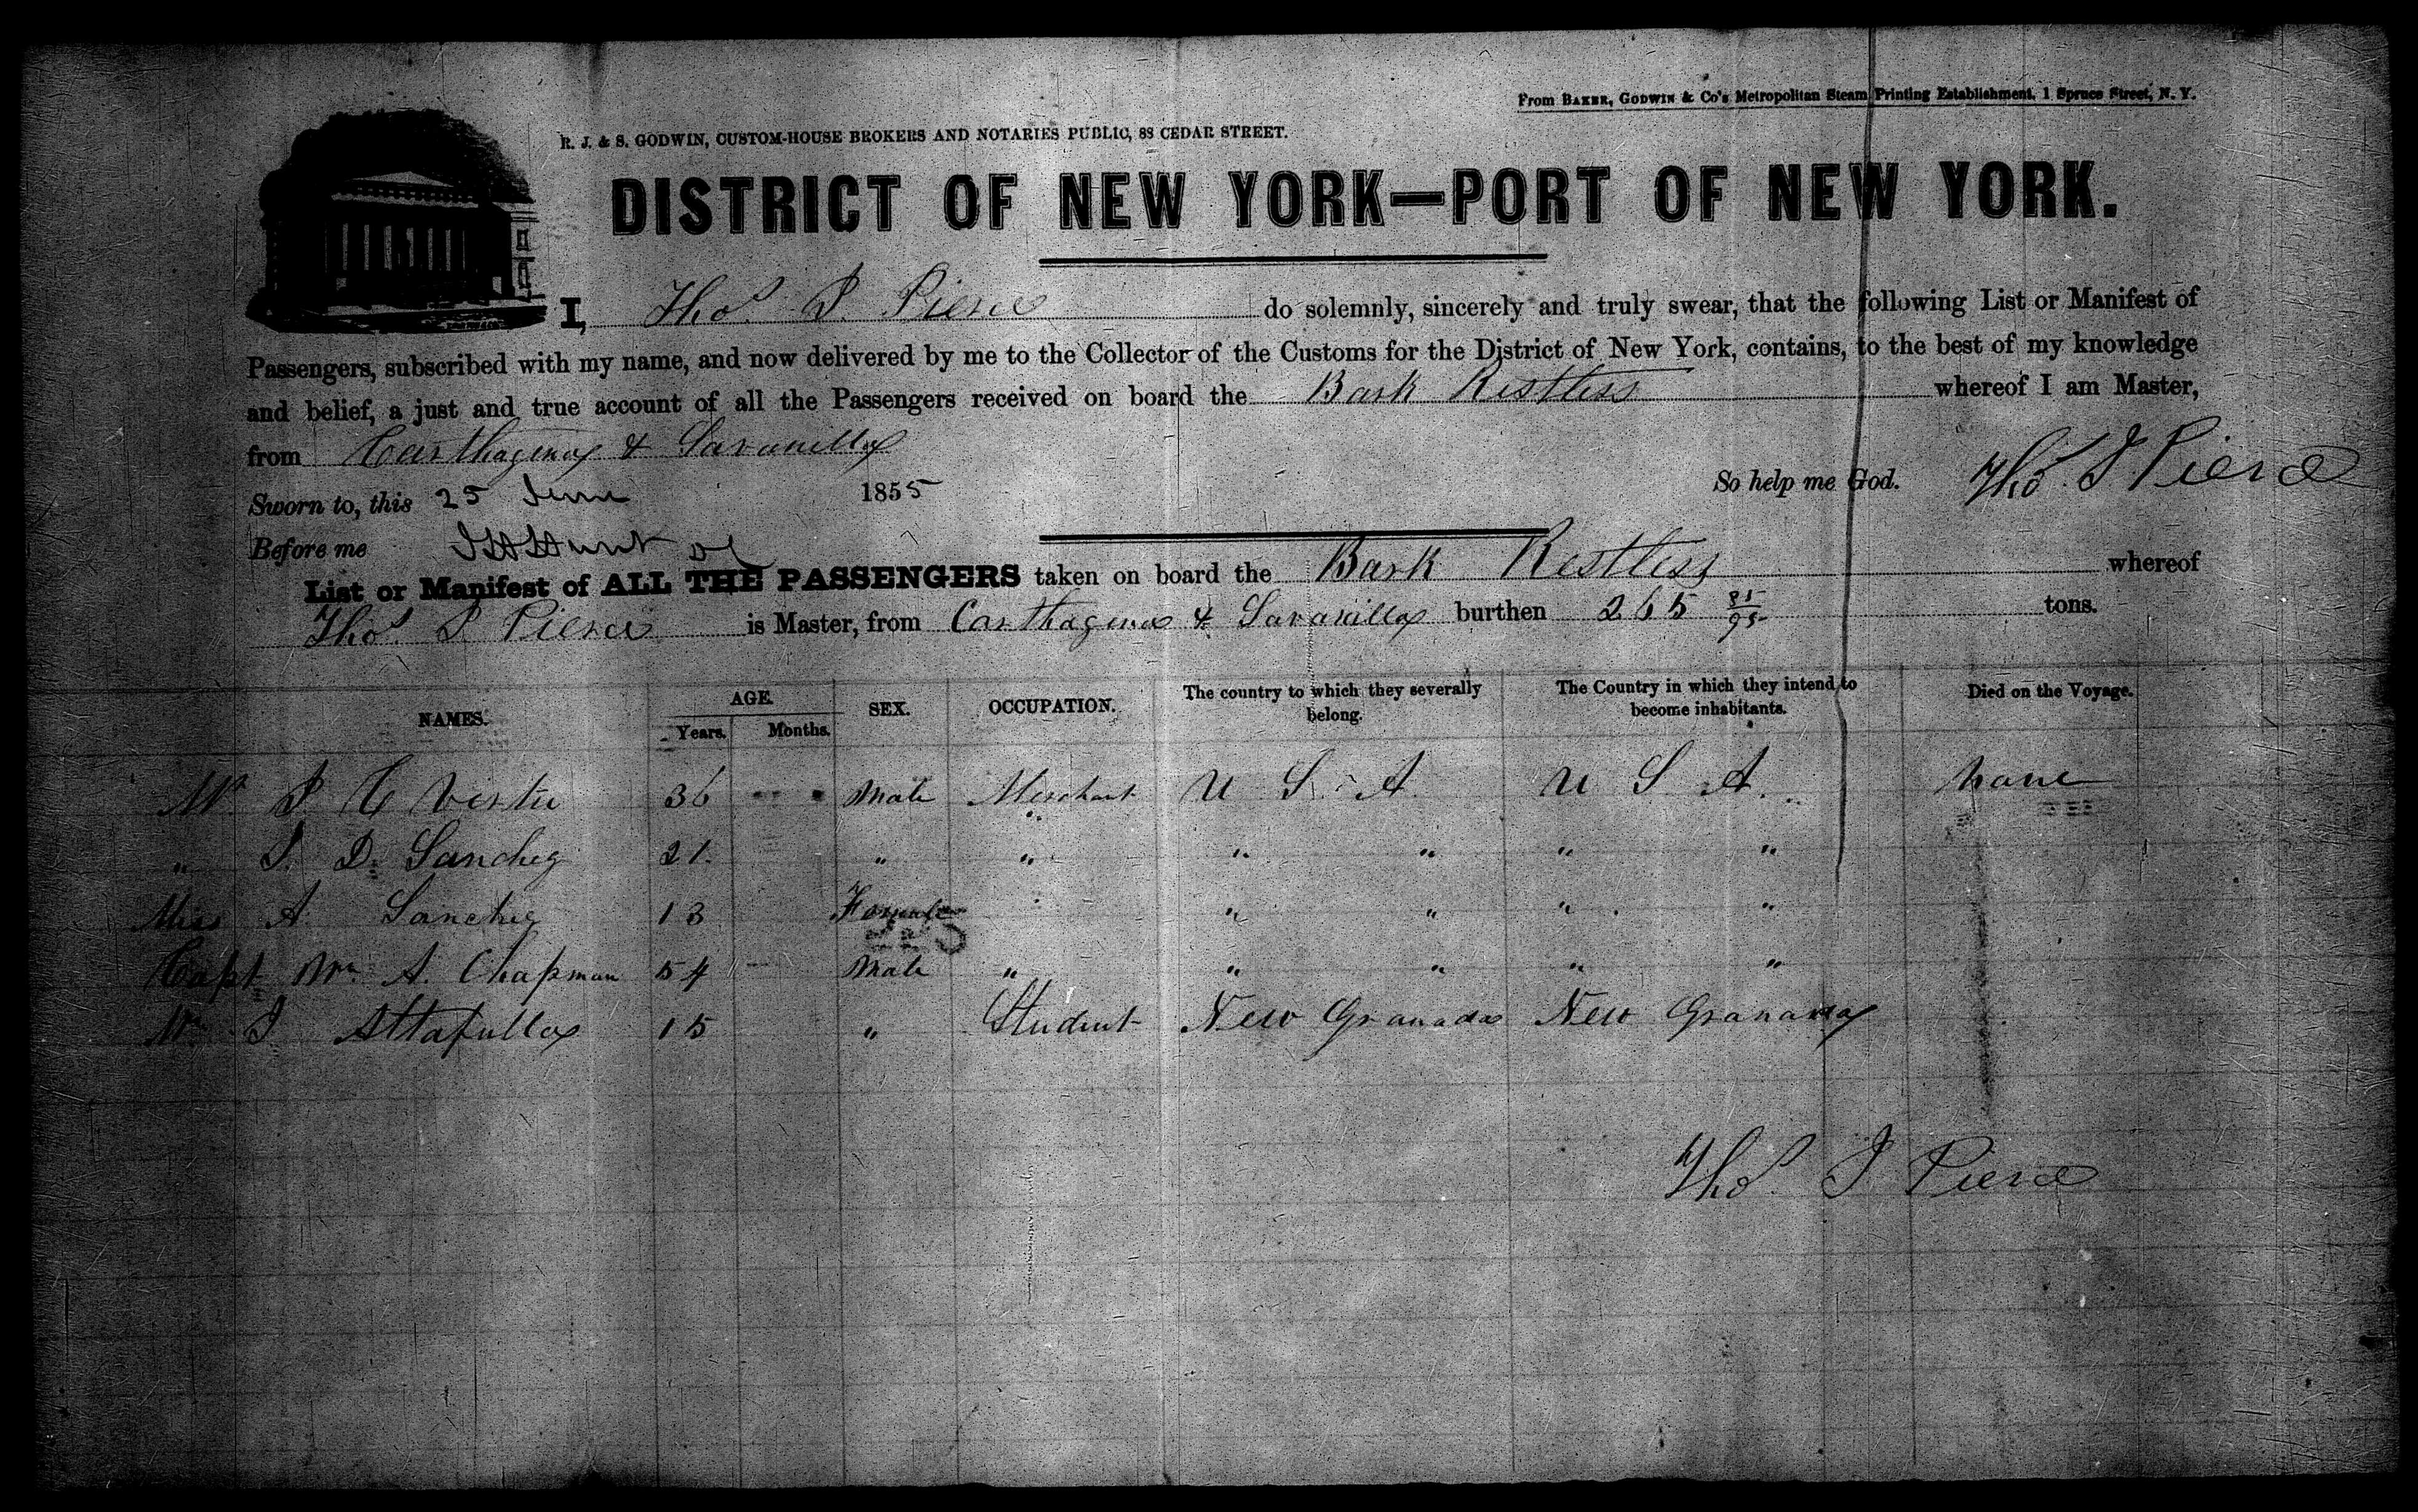 From BAKER, GODWIN & Co's Metropolitan Steam Printing Establishment, 1 Spruce Street, N. Y.
R. J. & S. GODWIN, CUSTOM-HOUSE BROKERS AND NOTARIES PUBLIC, 88 CEDAR STREET.
DISTRICT OF NEW YORK—PORT OF NEW YORK.
I, Thos. J. Pierce do solemnly, sincerely and truly swear, that the following List or Manifest of
Passengers, subscribed with my name, and now delivered by me to the Collector of the Customs for the District of New York, contains, to the best of my knowledge
and belief, a just and true account of all the Passengers received on board the Bark Restless whereof I am Master,
from Carthagena & Savanilla
So help me God. Thos. J Pierce
Sworn to, this 25 June 1855
Before me
List or Manifest of ALL THE PASSENGERS taken on board the Bark Restless whereof
Thos. J. Pierce is Master, from Carthagena & Savanilla burthen 265 85/95 tons.
NAMES. AGE. SEX. OCCUPATION. The country to which they severally belong. The Country in which they intend to become inhabitants. Died on the Voyage.
Years. Months.
Mr. J C 36 Male Merchant U S A U S A. None
" J. D. Sanchez 21 " " " " " "
Miss A Sanchez 13 Female " " " "
Capt Wm. A. Chapman 54 Male " " " " "
Mr. J 15 " Student New Granada New Granada
Thos. J Pierce